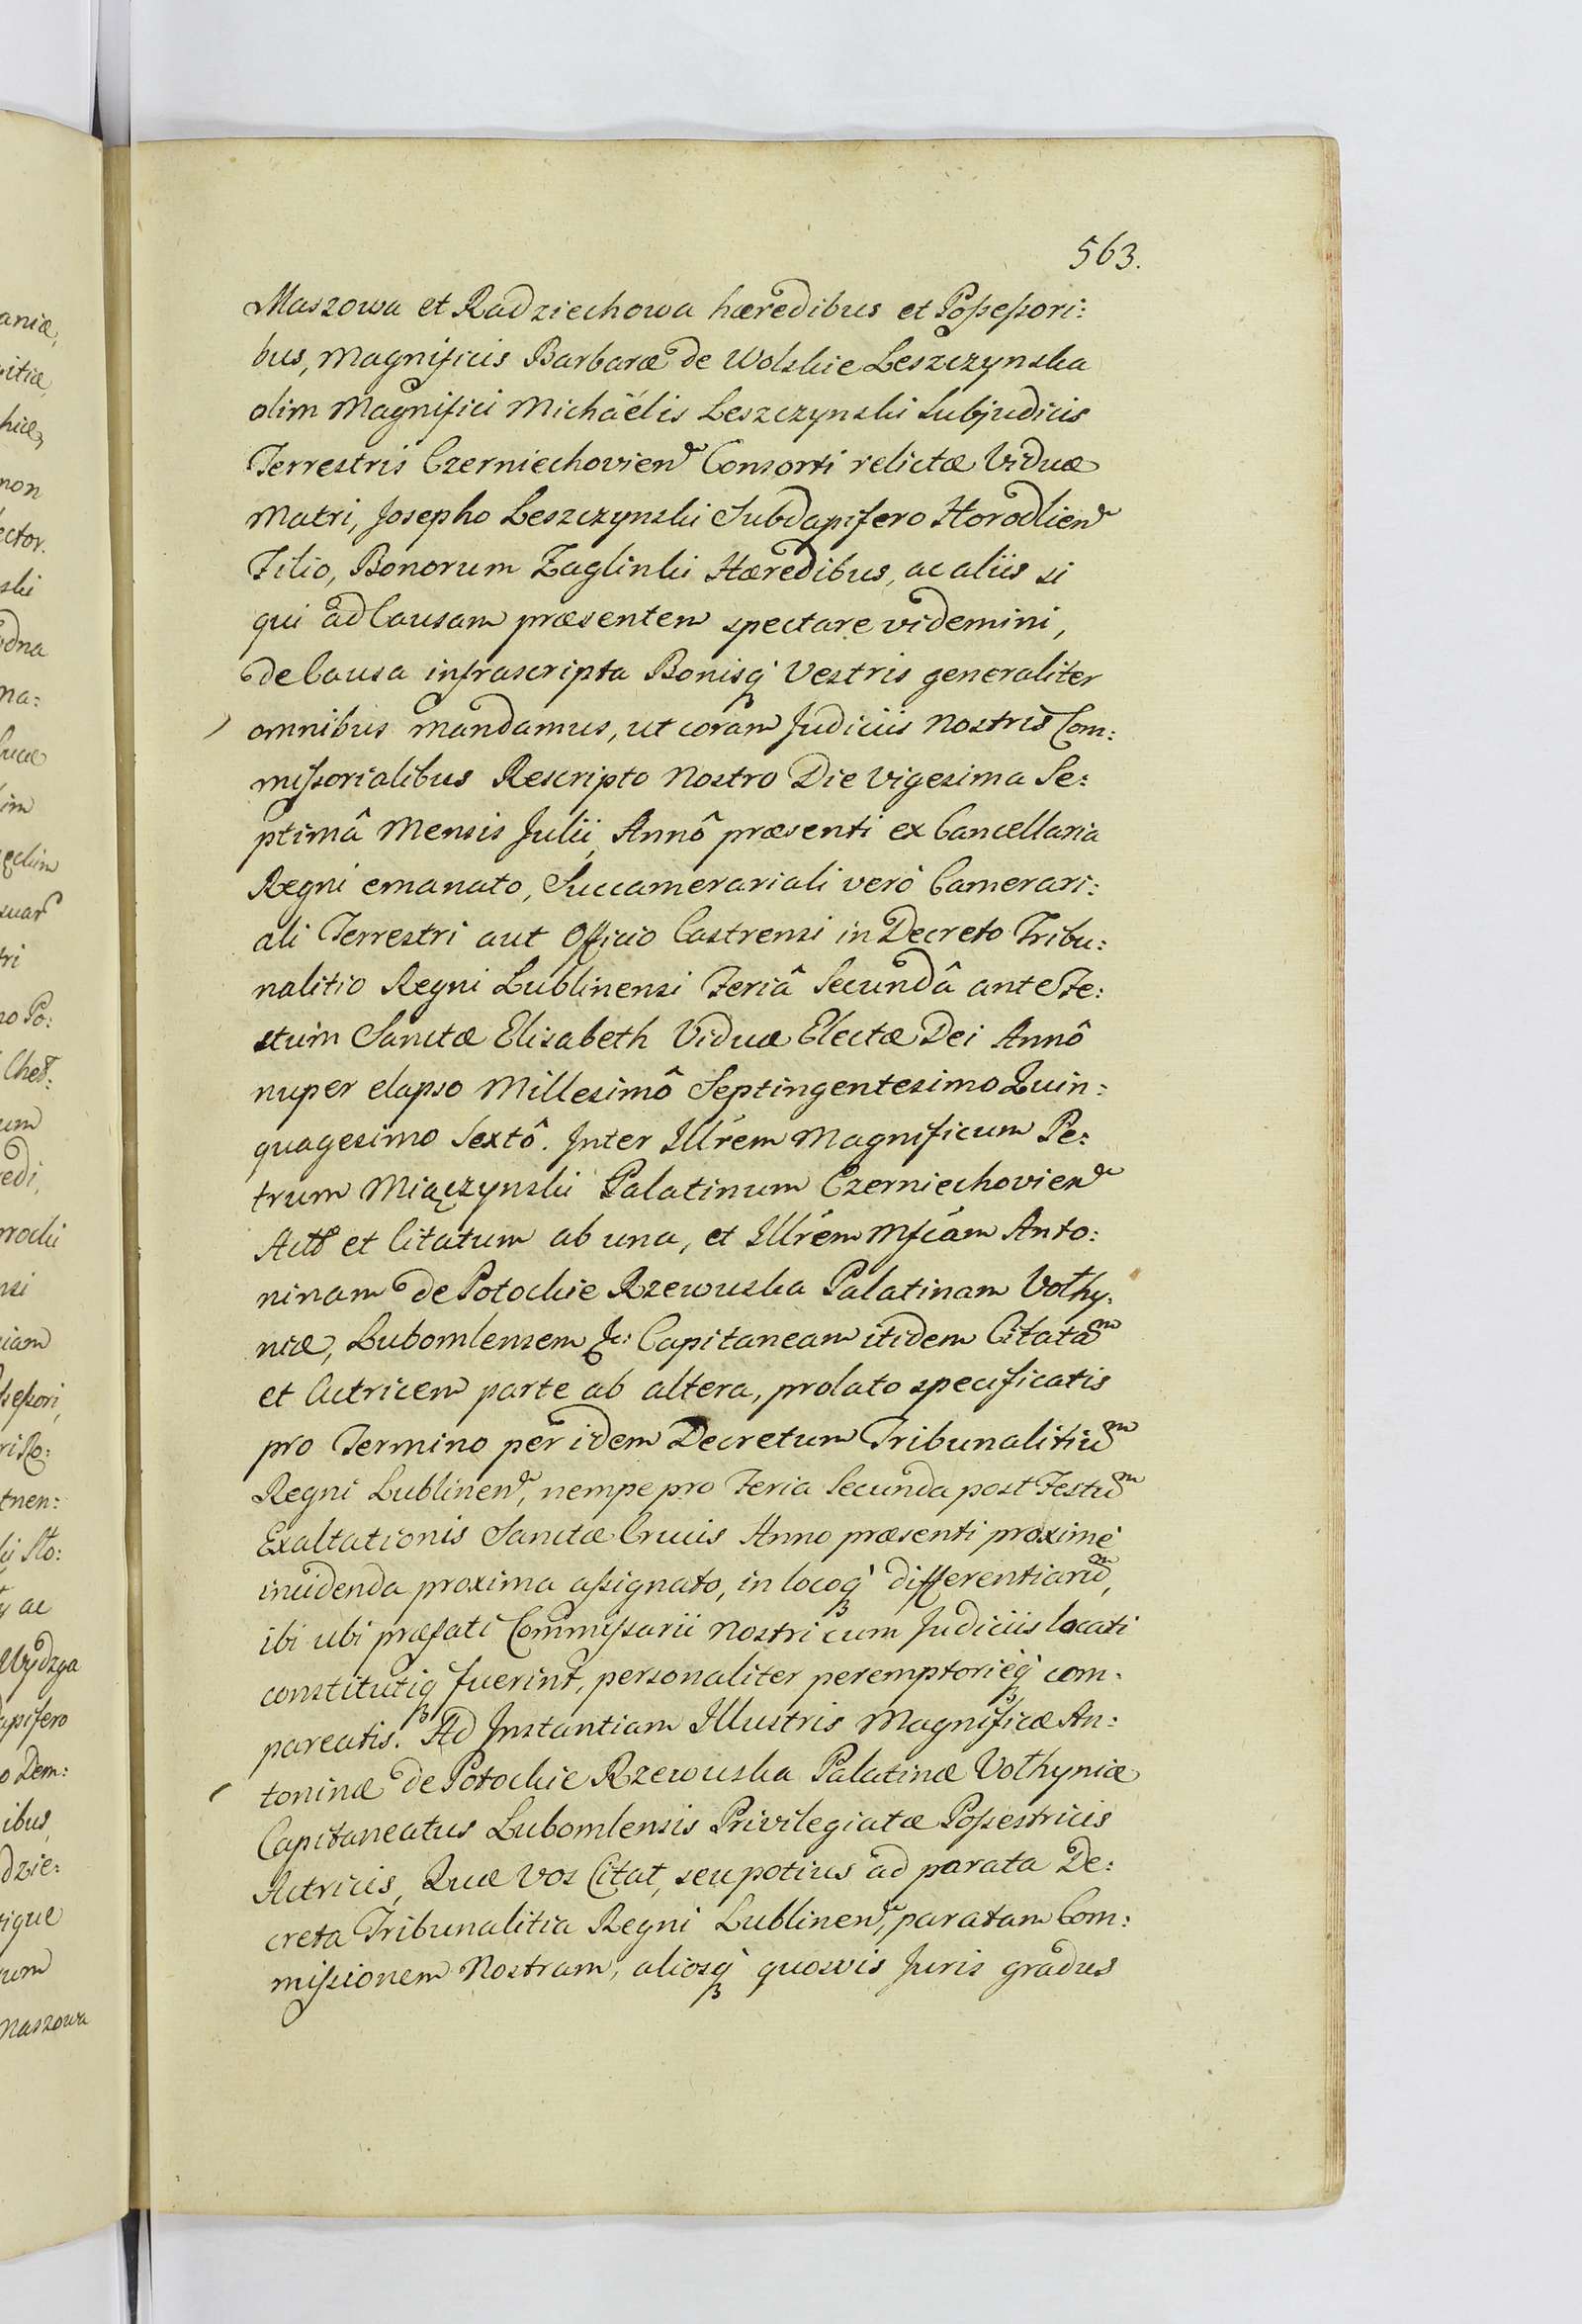 563.
Maszowa et Radziechowa hæredibus et Poßeßori:
bus, Magnificis Barbaræ de Wolskie Leszczynska
olim Magnifici Michaëlis Leszczynski Subjudicis
Terrestris Czerniechovien̄ Consorti relictæ Viduæ
Matri, Josepho Leszczynski Subdapifero Horodlien̄
Filio, Bonorum Zaglinki Hæredibus, ac aliis si
qui ad Causam præsentem spectare videmini,
de Causa infrascripta Bonisq̀ Vestris generaliter
omnibus mandamus, ut coram Judiciis Nostris Com:
mißorialibus Rescripto Nostro Die Vigesima Se:
ptimâ Mensis Julii, Annô præsenti ex Cancellaria
Regni emanato, Succamerariali verò Camerari:
ali Terrestri aut Officio Castrensi in Decreto Tribu:
nalitio Regni Lublinensi Feriâ Secundâ ante Fe:
stum Sanctæ Elisabeth Viduæ Electæ Dei Annô
nuper elapso Millesimô Septingentesimo Quin:
quagesimo Sextô. Inter Illr̃em Magnificum Pe:
trum Miączynski Palatinum Czerniechovien̄
Actt̄ et Citatum ab una, et Illr̃em Mfcãm Anto:
ninam de Potockie Rzewuska Palatinam Volhy:
niæ, Lubomlensem &c: Capitaneam itidem Citatam̄
et Actricem parte ab altera, prolato specificatis
pro Termino per idem Decretum Tribunalitiūm
Regni Lublinen̄, nempe pro Feria Secunda post Festūm
Exaltationis Sanctæ Crucis Anno præsenti proximè
incidenda proxima aßignato, in locoq̀ differentiarūm,
ibi ubi præfati Commißarii Nostri cum Judiciis locati
constitutiq̀ fuerint, personaliter peremptorièq̀ com:
pareatis. Ad Instantiam Illustris Magnificæ An:
toninæ de Potockie Rzewuska Palatinæ Volhyniæ
Capitaneatus Lubomlensis Privilegiatæ Poßestricis
Actricis, Quæ Vos Citat, seu potius ad parata De:
creta Tribunalitia Regni Lublinen̄, paratam Com:
mißionem Nostram, aliosq̀ quosvis Juris gradus